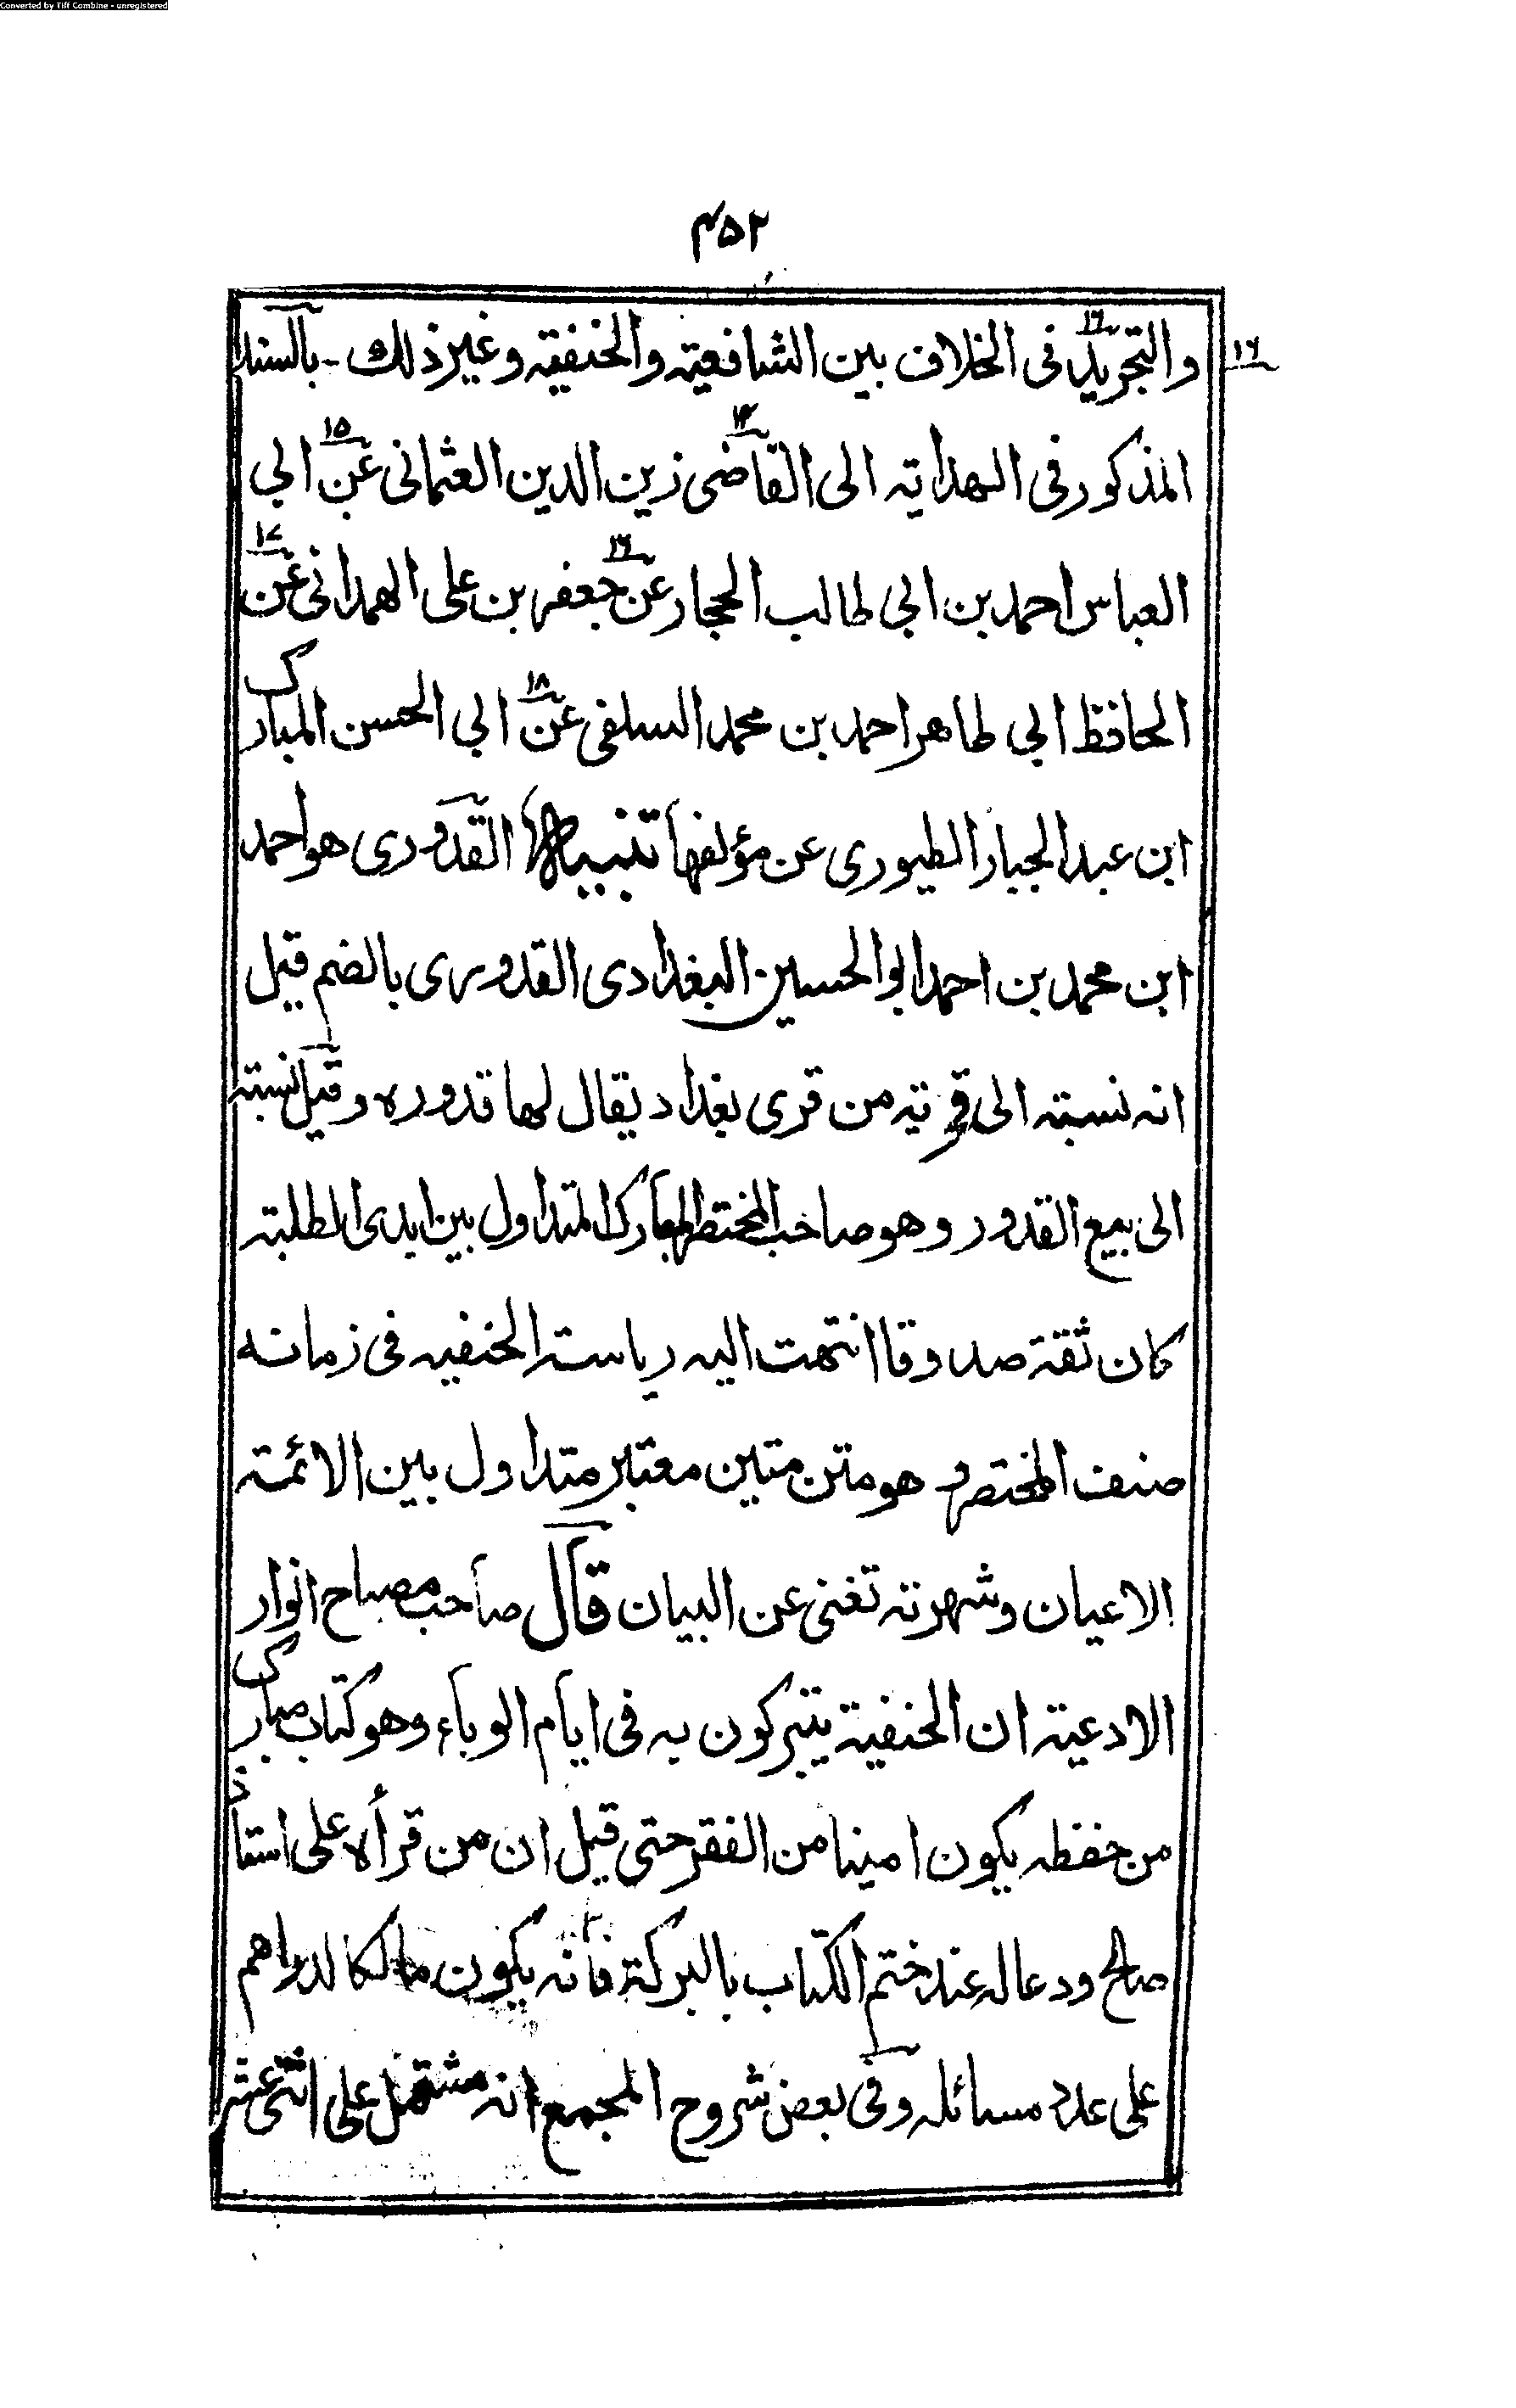 Converted by Tiff Combine - unregistered
۴۵۲
والتجريد في الخلاف بين الشافعية والحنفية وغير ذلك - بالسند
المذكور في الهداية الى القاضى زين الدين العثمانى عن ابي
العباس احمد بن ابي طالب الحجار عن جعفر بن على الهمدانى عن
الحافظ ابي طاهر احمد بن محمد السلفى عن ابي الحسن المبارك
ابن عبد الجبار الطيورى عن مؤلفها تنبيه القدورى هو احمد
ابن محمد بن احمد ابو الحسين البغدادى القدورى بالضم قيل
انه نسبة الى قرية من قرى بغداد يقال لها قدوره وقيل نسبة
الى بيع القدور وهو صاحب المختصر المبارك المتداول بين ايدى الطلبة
كان ثقة صدوقا انتهت اليه رياسة الحنفيه فى زمانه
صنف المختصر وهو متن متين معتبر متداول بين الائمة
الاعيان وشهرته تغنى عن البيان قال صاحب مصباح انوار
الادعية ان الحنفية يتبركون به فى ايام الوباء وهو كتاب مبارك
من حفظه يكون امينا من الفقر حتى قيل ان من قرأه على استاذ
صالح ودعا له عند ختم الكتاب بالبركة فانه يكون مالكا لدراهم
على عدد مسائله وفى بعض شروح المجمع انه مشتمل على اثنى عشر